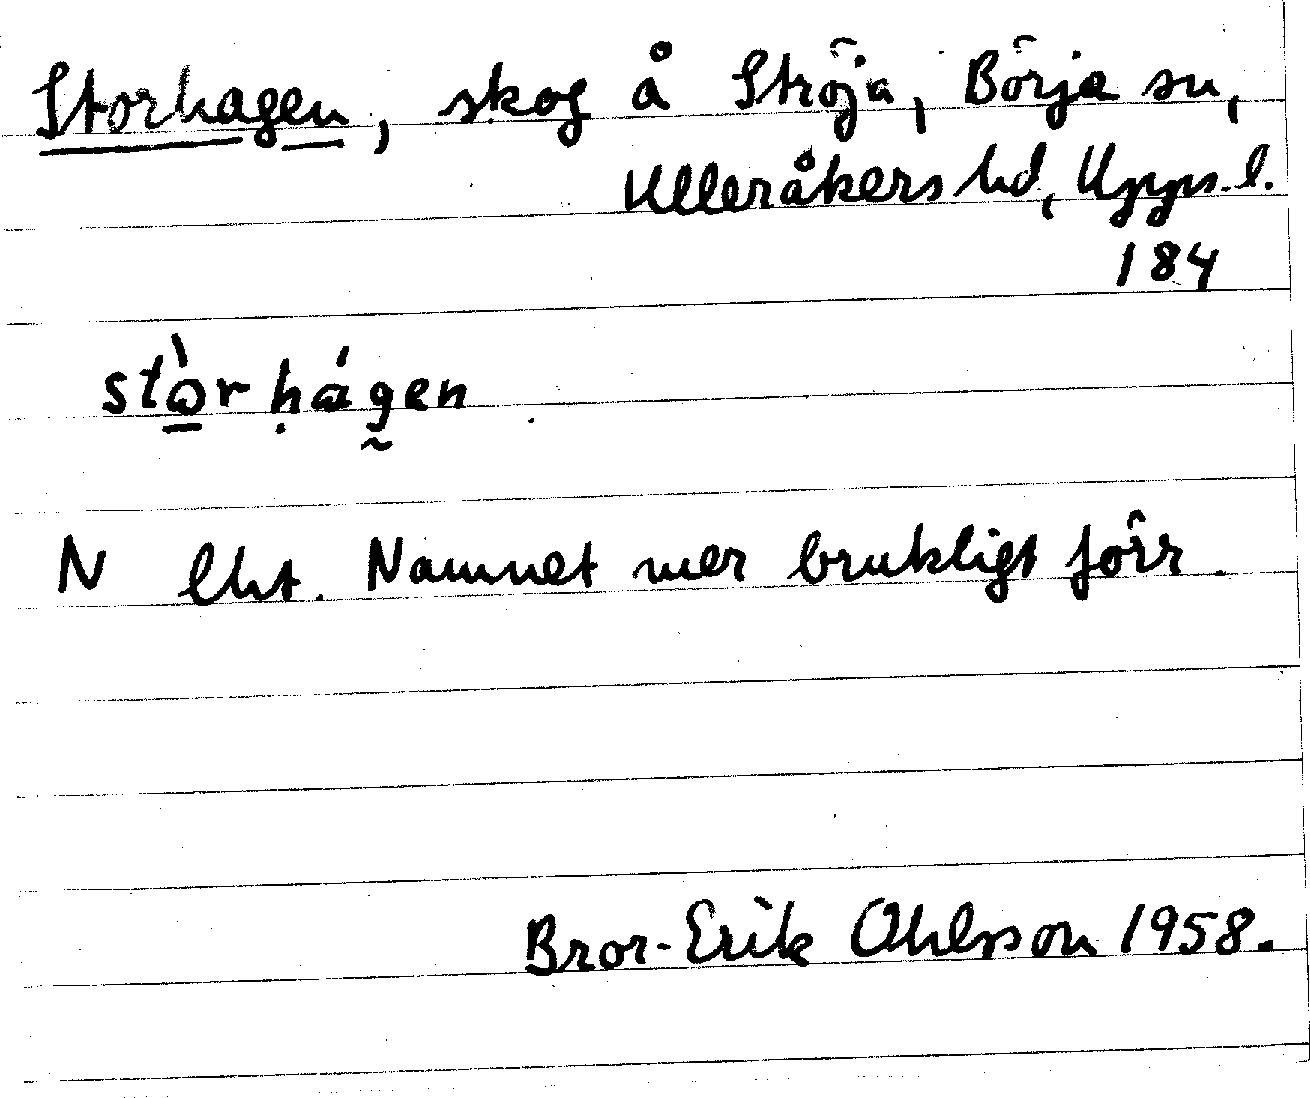 Storhagen, skog å Ströja, Börje sn,
Ulleråkers hd, Upps. l.
184
stòrhágen
N Eht. Namnet mer brukligt förr.
Bror-Erik Ohlsson 1958.